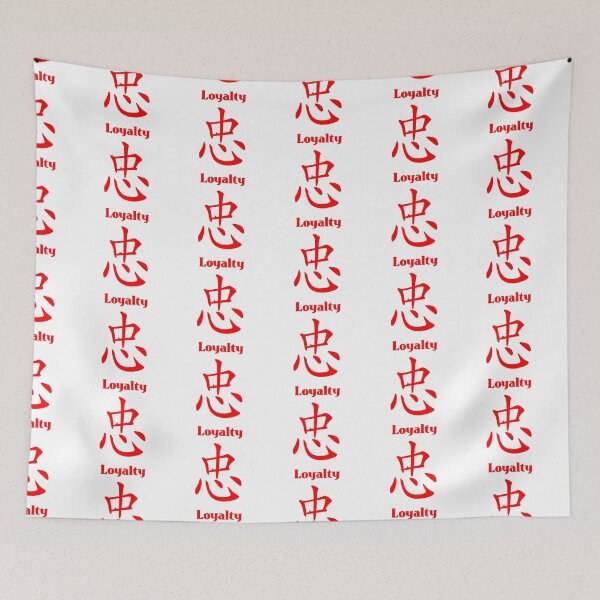 Loyalty
忠
yalty
忠
alty
忠
alty
忠
alty
忠
yalty
忠
Loyalty
忠
Loyalty
忠
Loyalty
忠
Loyalty
忠
Loyalty
忠
Loyalty
忠
Loyalty
忠
Loyalty
忠
Loyalty
忠
Loyalty
忠
Loyalty
忠
Loyalty
忠
Loyalty
忠
Loyalty
忠
Loyalty
忠
Loyalty
忠
Loyalty
忠
Loyalty
忠
Loyalty
忠
Loyalty
忠
Loyalty
忠
Loyalty
忠
Loyalty
忠
Loyalty
忠
Loyalty
忠
Loyalty
忠
Loyalty
忠